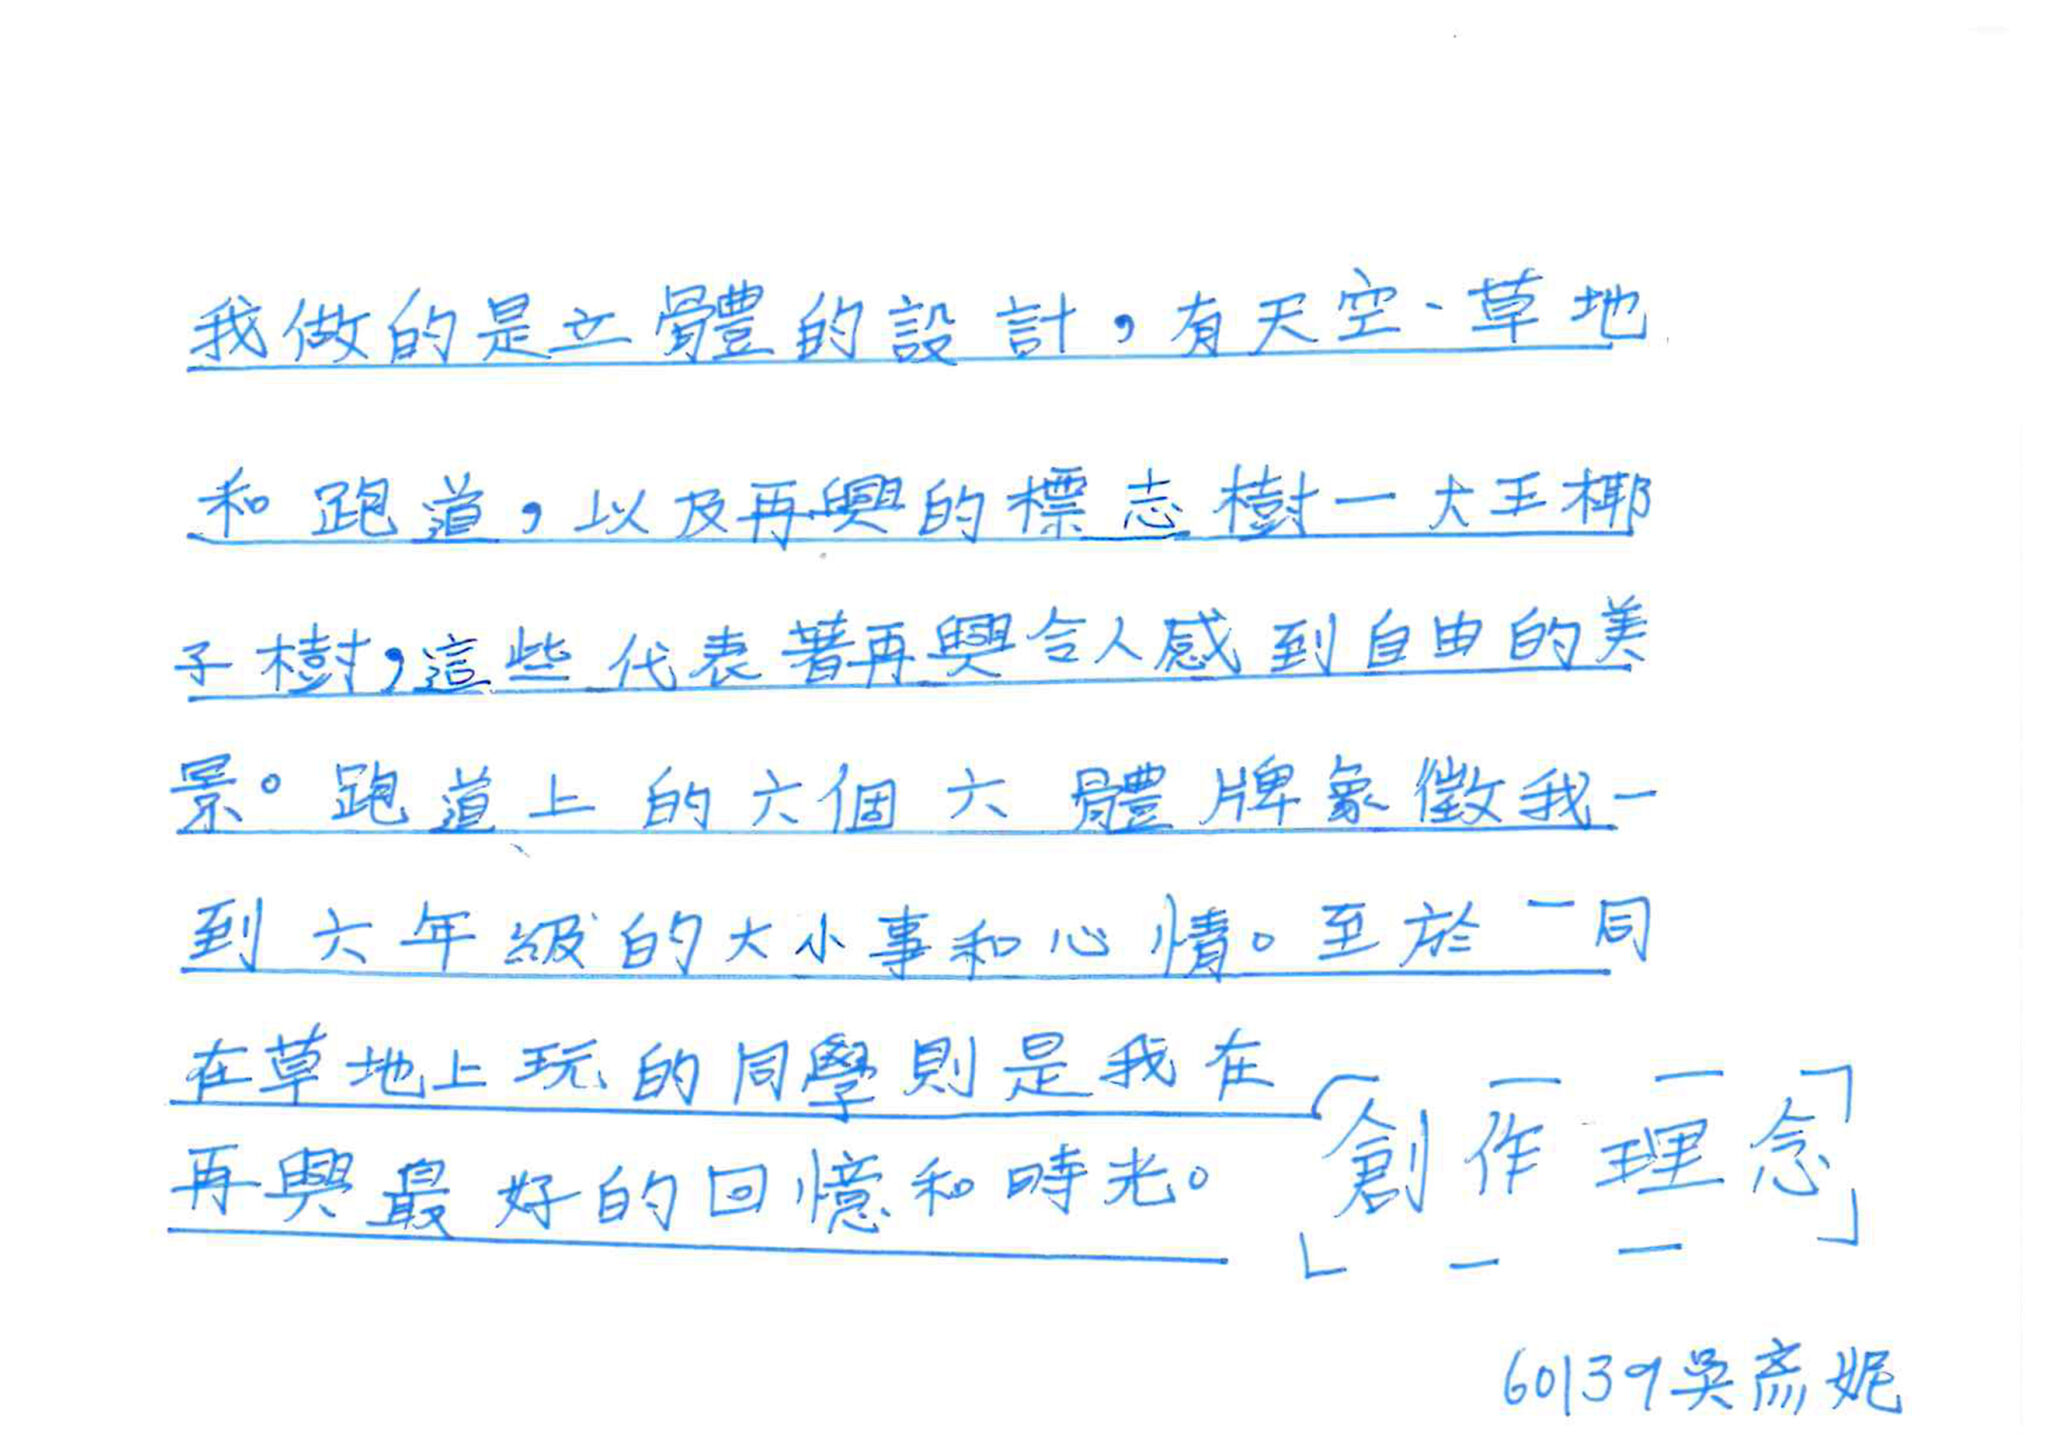 我做的是立體的設計，有天空、草地
和跑道，以及再興的標志樹一大王椰
子樹，這些代表著再興令人感到自由的美
景。跑道上的六個六體牌象徵我一
到六年級的大小事和心情。至於一同
在草地上玩的同學則是我在
再興最好的回憶和時光。
創作理念
60139吳彥妮